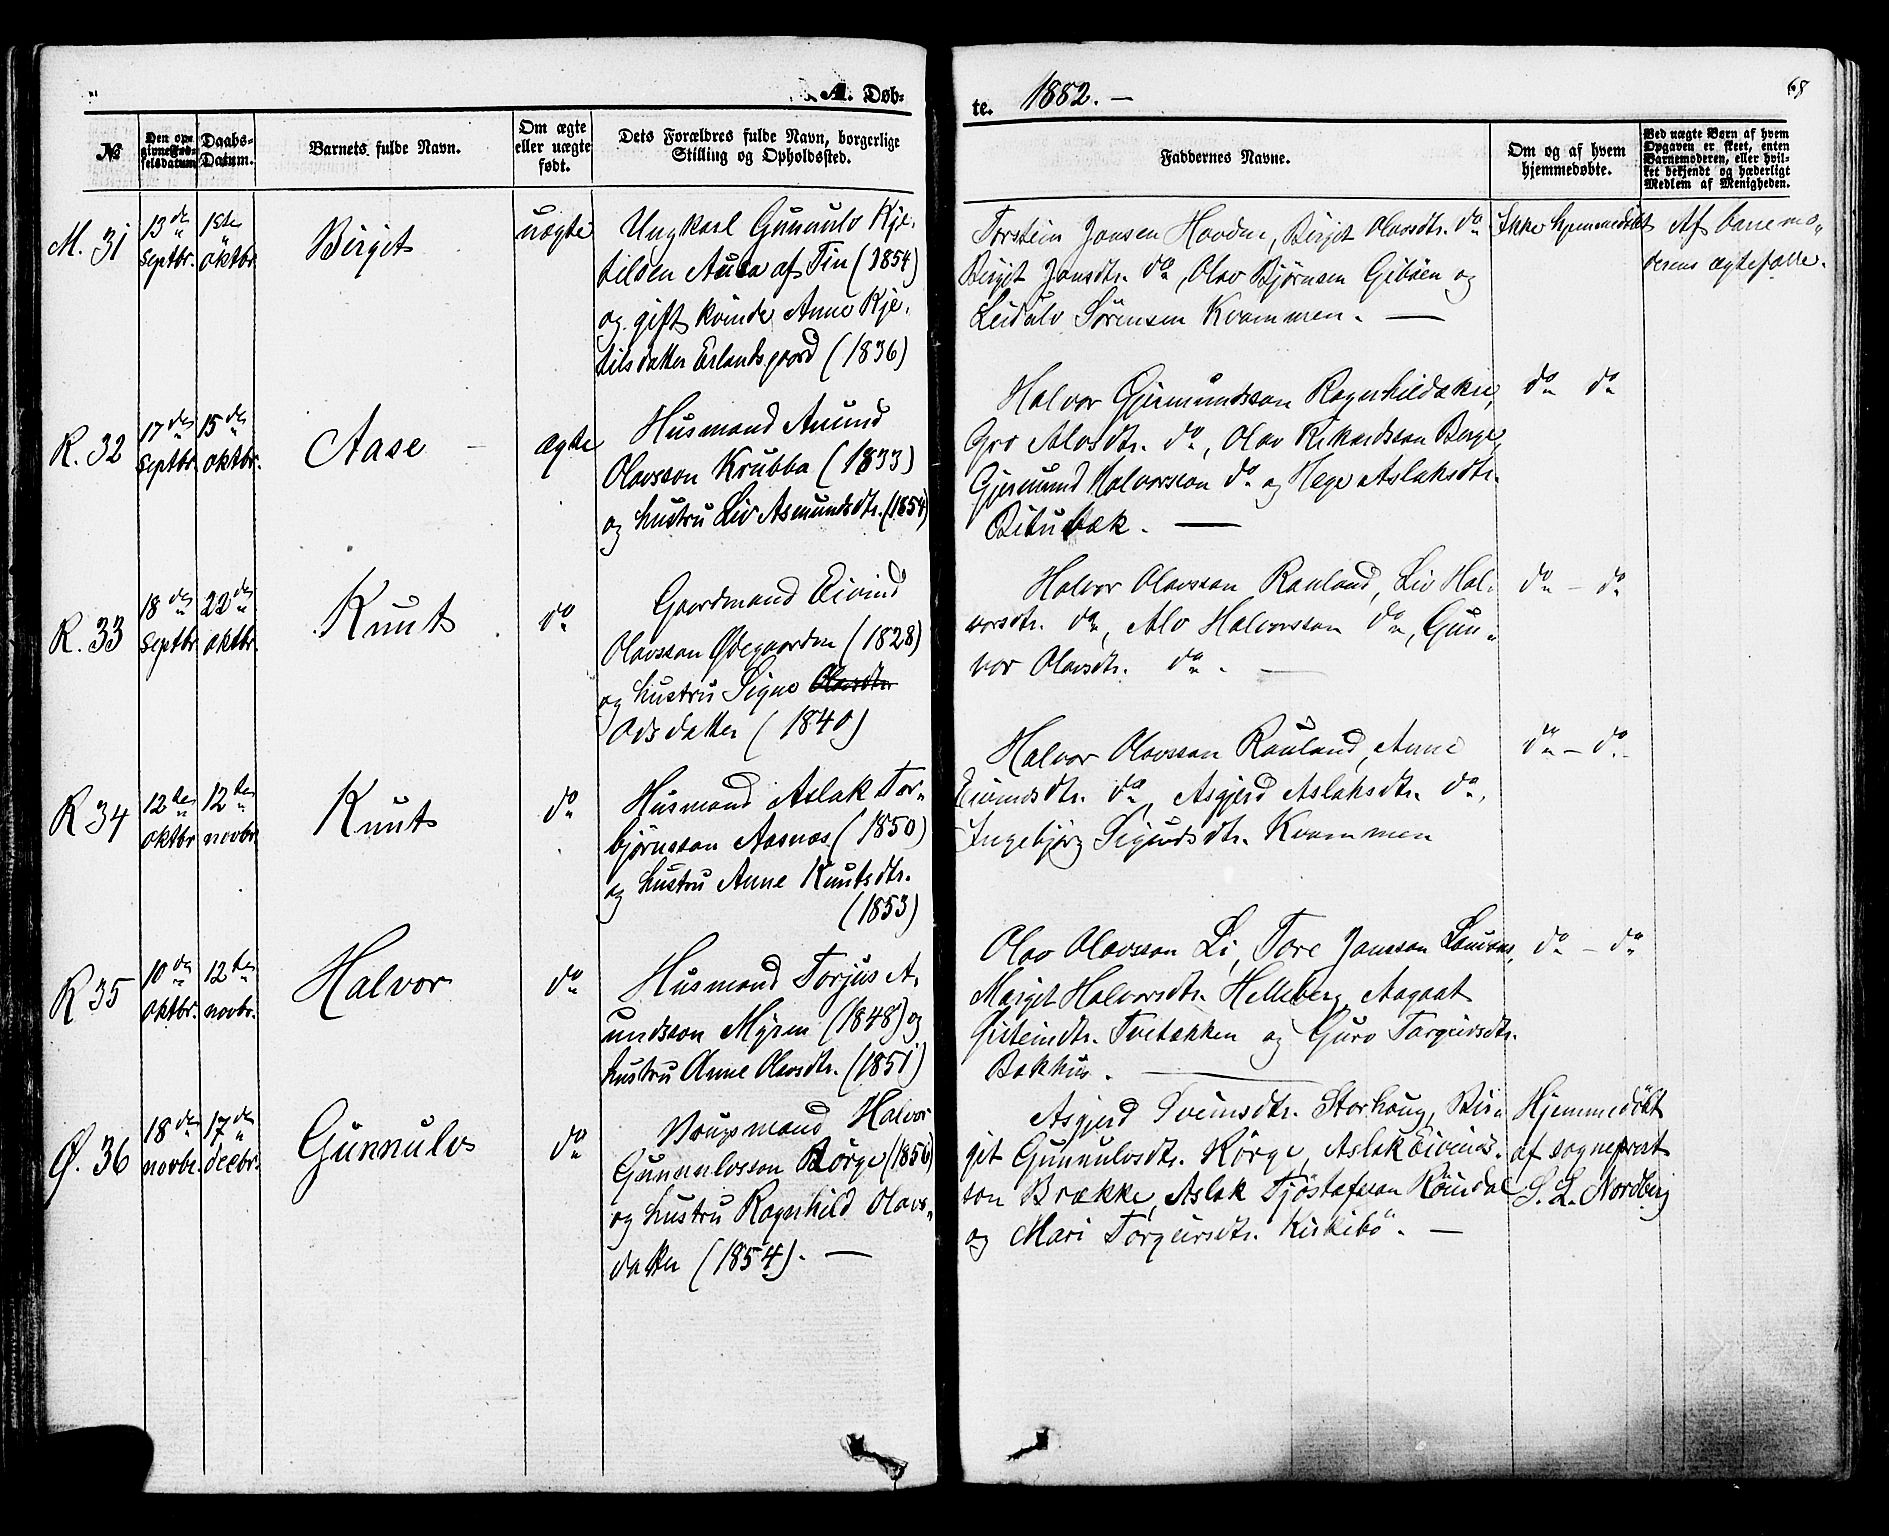 A. Døb-
te. 1882. —
68
№
Den opgivne Fødselsdatum
Daabs-
Datum.
Barnets fulde Navn.
Om ægte
eller uægte
født.
Dets Forældres fulde Navn, borgerlige
Stilling og Opholdssted.
Faddernes Navne.
Om og af hvem
hjemmedøbte.
Ved uægte Børn af hvem
Opgaven er skeet, enten
Barnemoderen, eller hvil-
ket bekjendt og hæderligt
Medlem af Menigheden.
M. 31
13de
septbr.
1ste
oktbr.
Birgit
uægte
Ungkarl Gunnulv Kje-
tilsen af Tin (1854)
og gift kvinde Anne Kje-
tilsdatter Erlandsgaard (1836)
Torstein Jonsen Hovden, Birgit Olavsdtr. do
Birgit Jonsdtr. do, Olav Bjørnsen Gibøen og
Leidulv Sørensen Kvammen. —
Ikke hjemmedøbt
Af barnemo-
derens ægtefælle.
R. 32
17de
septbr
15de
oktbr.
Aase
ægte
Husmand Anund
Olavsson Krubba (1833)
og hustru Liv Asmundsdtr. (1854)
Halvor Gjermundsson
Gro Alvsdtr. do, Olav Rikardsson Berge,
Gjermund Halvorsson do og Hege Aslaksdtr.
Bitubæk. —
do do
R. 33
18de
septbr
22de
oktbr.
Knut
do
Gaardmand Eivind
Olavsson Ødegaarden (1828)
og hustru Signe Olavsdtr
Odsdatter (1840)
Halvor Olavsson Rauland, Liv Hal-
vorsdtr. do, Alv Halvorsson do, Gun-
vor Olavsdtr. do. —
do - do
R 34
12te
oktbr
12te
novbr.
Knut
do
Husmand Aslak Tor-
bjørnsson Aasnæs (1850)
og hustru Anne Knutsdtr.
(1853)
Halvor Olavsson Rauland, Anne
Eivindsdtr. do, Asgjerd Aslaksdtr. do,
Ingebjørg Sigurdsdtr. Kvammen
do - do
R 35
10de
oktbr.
12te
novbr.
Halvor
do
Husmand Torjus A-
undsson Myren (1848) og
hustru Anne Olavsdtr. (1851)
Olav Olavsson Li, Tore Jonsson
Margit Halvorsdtr. Helleberg, Aagaat
Øisteindtr. Tvetakken og Guro Torgeirsdtr.
Bakhus. —
do - do
Ø. 36
18de
novbr.
17de
decbr.
Gunnulv
do
Brugsmand Halvor
Gunnulvsson Børge (1856)
og hustru Ragnhild Olavs-
datter (1854). —
Asgjerd Sveinsdtr. Storhoug, Bir-
git Gunnulvsdtr. Kørge, Aslak Eivinds-
son Brække, Aslak Tjøstafsson
og Mari Torgeirsdtr. Kirkibø. —
Hjemmedøbt
af sogneprest
S. L. Nordberg